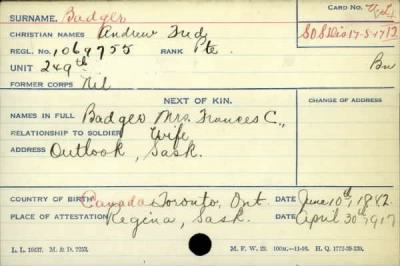 SURNAME. Badger
CARD NO.
CHRISTIAN NAMES Andrew Fredk
S.O.S. Dis 17-5-17
REGL. NO. 1069755 RANK Pte.
UNIT 249th
FORMER CORPS Nil
NEXT OF KIN.
CHANGE OF ADDRESS
NAMES IN FULL Badger Mrs. Frances C.,
RELATIONSHIP TO SOLDIER Wife
ADDRESS Outlook, Sask.
COUNTRY OF BIRTH Canada Toronto, Ont. DATE June 10th, 1882.
PLACE OF ATTESTATION Regina, Sask. DATE April 30th, 1917
L. L. 19637. M. & D. 7253. M. F. W. 22. 100M.—11-16. H. Q. 1772-39-339.